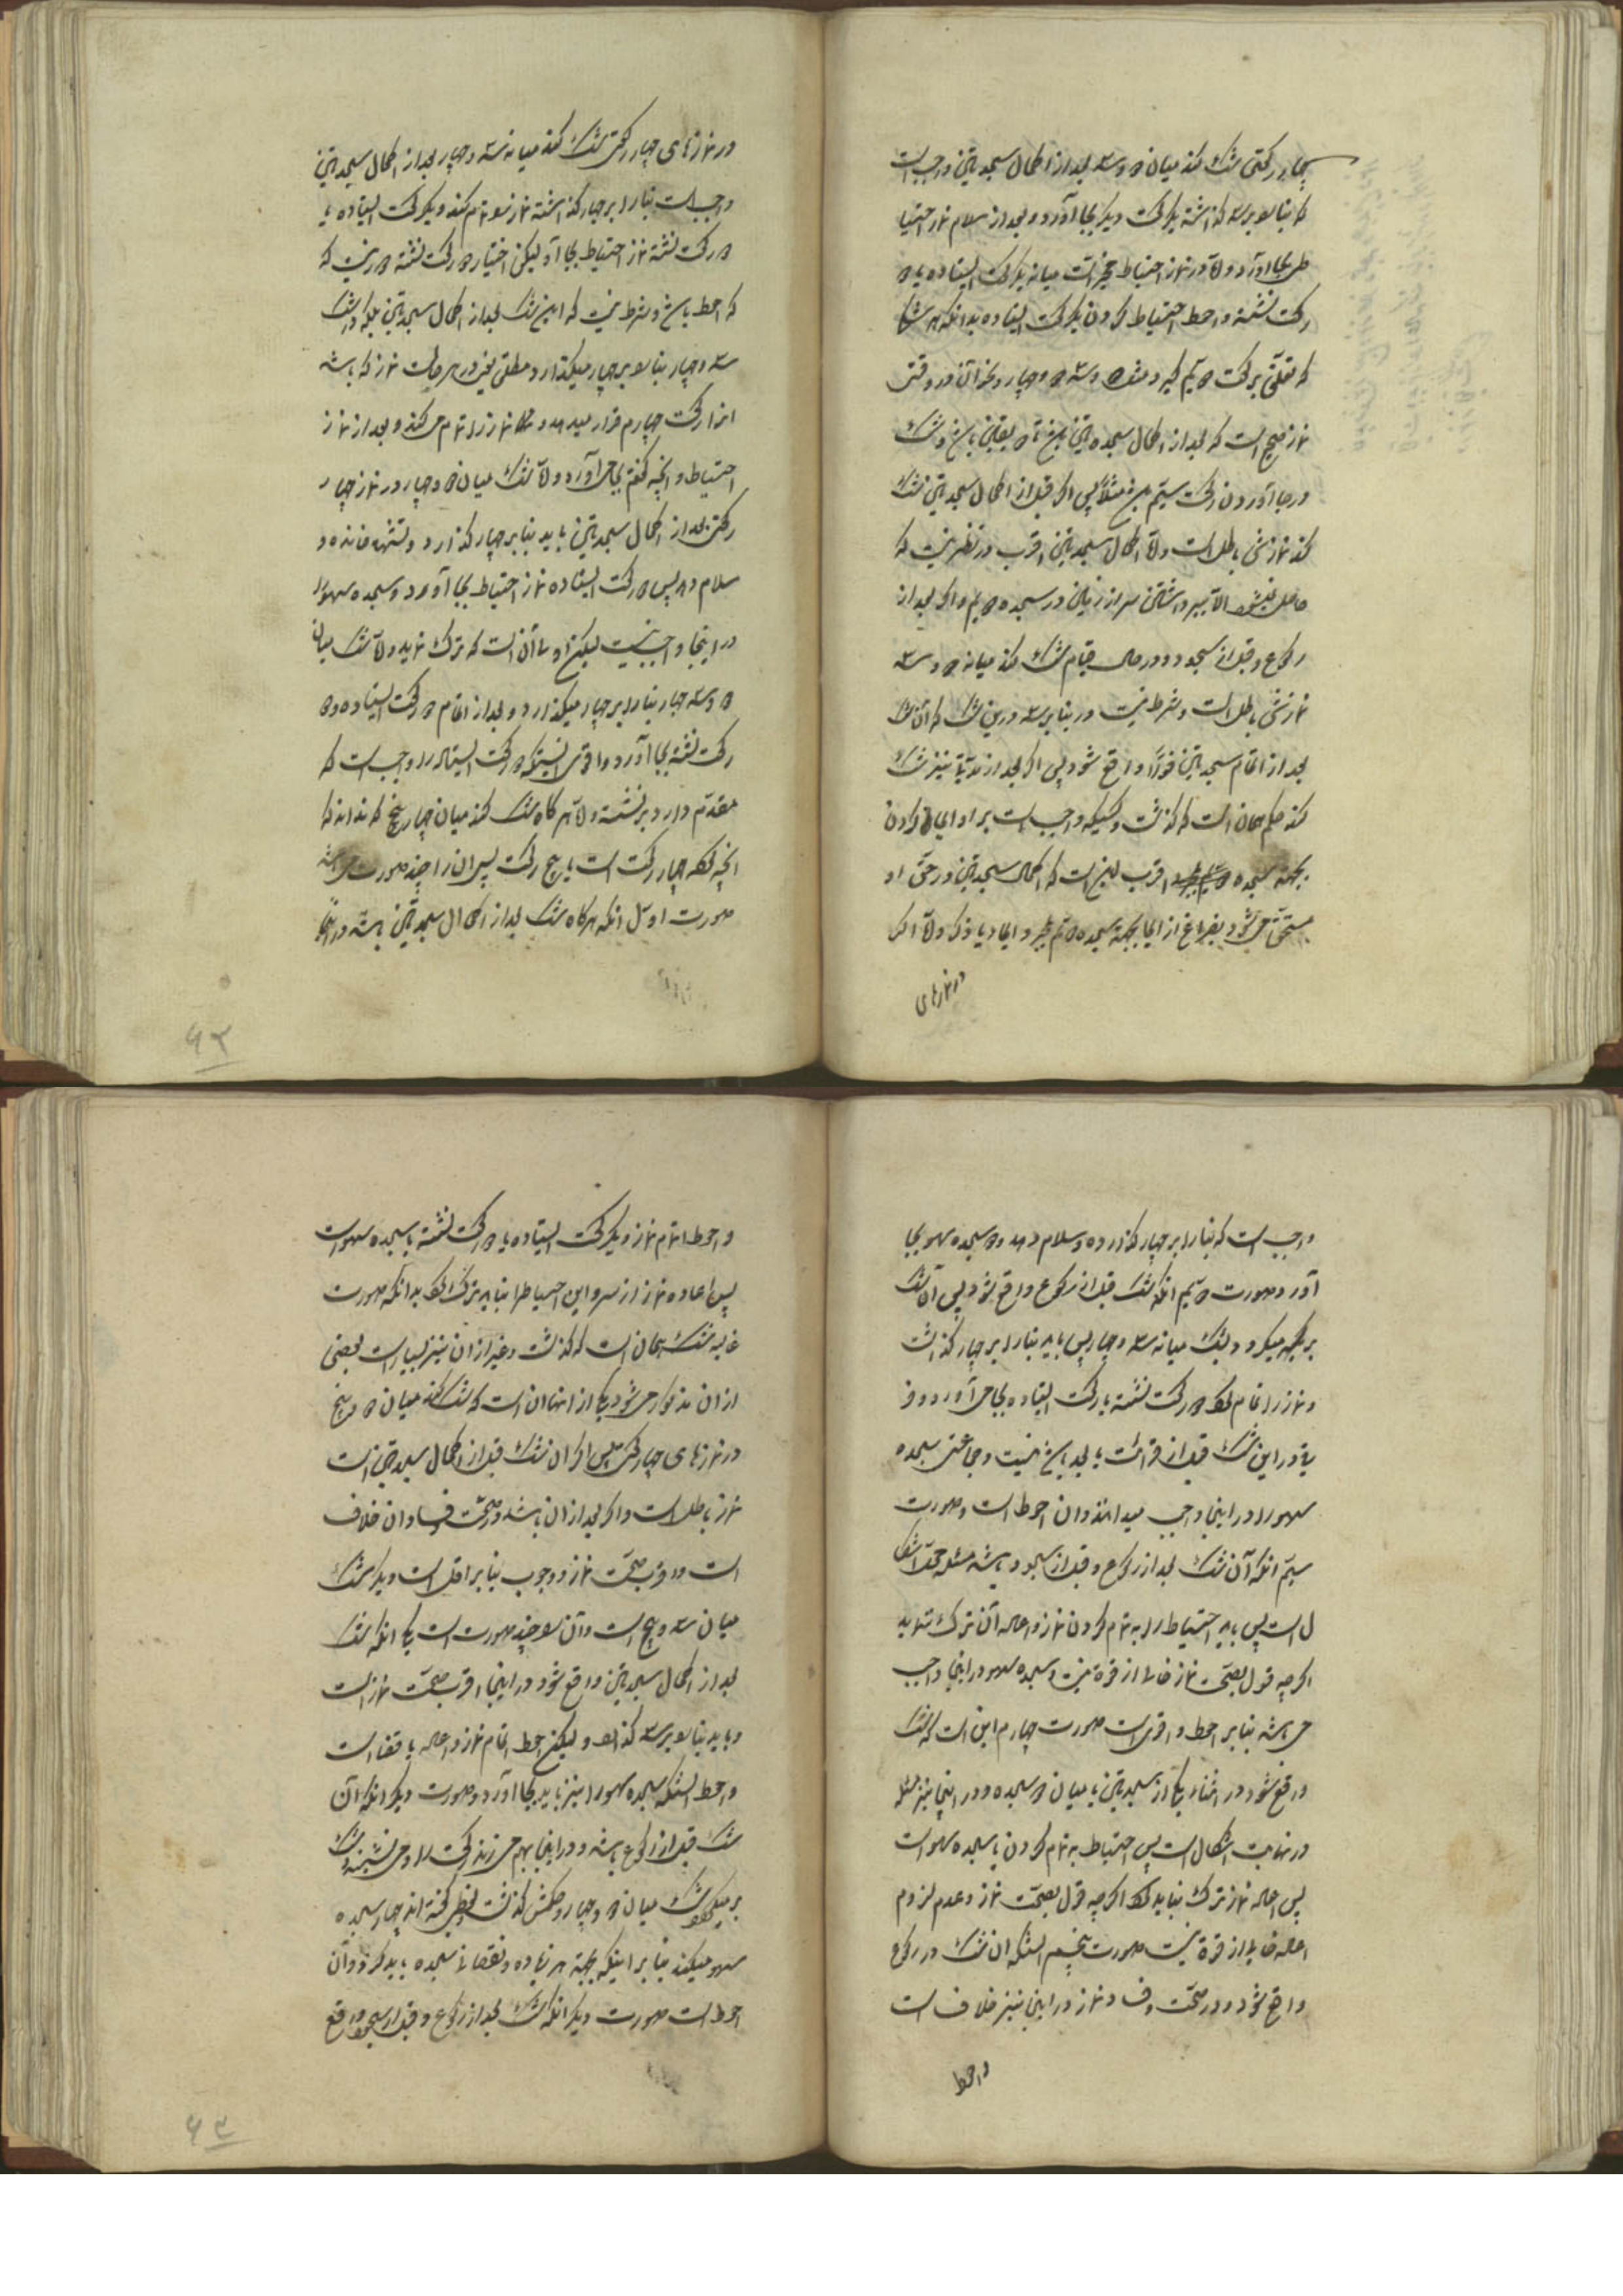 چهار رکعتی شک کند میان دو و سه بعد از اکمال سجدتین واجب است
که بنا را بر سه گذاشته یکرکعت دیگر بجا آورد و بعد از سلام نماز احتیا
ط بجا آورد و در نماز احتیاط مخیر است میانه یکرکعت ایستاده یا دو
رکعت نشسته و احوط احتیاط کردن یکرکعت ایستاده بدانکه هر شکی
که تعلق برکعت دویم گیرد مثل دو و سه و دو و چهار و نحو آن در وقتی
نماز صحیح است که بعد از اکمال سجدتین باشد تا دو یقینی باشد و شک
در بجا آوردن رکعت سیم باشد مثلا پس اگر قبل از اکمال سجدتین شک
کند نمازش باطل است و اکمال سجدتین اقرب در نظر نیست که
حاصل نمیشود الا ببر داشتن سر از زمین در سجده دویم و اگر بعد از
رکوع و قبل از سجود و در حال قیام شک کند میانه دو و سه
نمازش باطل است و شرط نیست در بنا بر سه درین شک که آن شک
بعد از اتمام سجدتین فورا واقع شود پس اگر بعد از مدتی نیز شک
کند حکم همان است که گذشت و کسیکه واجب است بر او ایما کردن
بجهته سجده اقرب این است که اکمال سجدتین در حق او
متحقق میشود بفراغ از ایما بجهته سجده دویم
در نمازهای
در نمازهای چهار رکعتی شک کند میانه سه و چهار بعد از اکمال سجدتین
واجب است بنا را بر چهار گذاشته نماز را تمام کند و یکرکعت ایستاده یا
دو رکعت نشسته نماز احتیاط بجا آورد لیکن اختیار دو رکعت نشسته
که احوط باشد و شرط نیست که این شک بعد از اکمال سجدتین بلکه در شک
سه و چهار بنا را بر چهار میگذارد مطلقا یعنی در هر حالت نماز که باشد
انرا رکعت چهارم قرار میدهد و نماز را تمام میکند و بعد از نماز
احتیاط و انچه گفتم بجا می آورد و شک میان دو و چهار در نماز چهار
رکعتی بعد از اکمال سجدتین باید بنا بر چهار گذارد و تشهد خوانده و
سلام دهد پس دو رکعت ایستاده نماز احتیاط بجا آورد و سجده سهو را
در اینجا واجب نیست لیکن اولی آن است که ترک ننماید و شک میان
دو و سه و چهار بنا را بر چهار میگذارد و بعد از اتمام دو رکعت ایستاده و دو
رکعت نشسته بجا آورد و اقوی اینستکه دو رکعت ایستاده را واجب است که
مقدم دارد بر نشسته و هر گاه شک کند میان چهار و پنج که نداند که
انچه کرده چهار رکعت است یا پنج رکعت پس آن را چند صورت می باشد
صورت اول انکه هر گاه شک بعد از اکمال سجدتین باشد در اینجا
۶۲
واجب است که بنا را بر چهار گذارده و سلام دهد و دو سجده سهو بجا
آورد صورت دویم انکه شک قبل از رکوع واقع شود پس آن شک
بر میگردد بشک میانه سه و چهار پس باید بنا را بر چهار گذاشت
و نماز را تمام کرد دو رکعت نشسته یا رکعت ایستاده بجا می آورد و فر
قی در این شک قبل از قرائت یا بعد باشد نیست و جماعتی سجده
سهو را در اینجا واجب میدانند و ان احوط است و صورت
سیم انکه آن شک بعد از رکوع و قبل از سجود باشد مسئله محل اشکا
ل است پس باید احتیاط را به تمام کردن نماز و اعاده آن ترک ننماید
اگر چه قول بصحت نماز خالی از قوة نیست و سجده سهو در اینجا واجب
می باشد بنا بر احوط و اقوی است صورت چهارم این است که شک
واقع شود در اثناء یکی از سجدتین یا میان دو سجده و در اینجا نیز مسئله
در نهایت اشکال است پس احتیاط به تمام کردن با سجده سهو است
پس اعاده نماز ترک نباید کرد اگر چه قول بصحت نماز و عدم لزوم
اعاده خالی از قوة نیست صورت پنجم اینستکه ان شک در رکوع
واقع شود و در صحت و فساد نماز در اینجا نیز خلاف است
و احوط
و احوط اتمام نماز و یکرکعت ایستاده یا دو رکعت نشسته با سجده سهو است
پس اعاده نماز از سر و این احتیاط را نباید ترک کرد بدانکه صورت
غالبه شک همان است که گذشت و غیر از ان نیز بسیار است بعضی
از ان مذکور می شود یکی از انها ان است که شک کند میان دو و پنج
در نمازهای چهار رکعتی پس اگر ان شک قبل از اکمال سجدتین است
نماز باطل است و اگر بعد از ان باشد در صحت و فساد ان خلاف
است و اقرب صحت نماز و وجوب بنا بر اقل است و دیگر شک
میان سه و پنج است و آن را چند صورت است یکی انکه شک
بعد از اکمال سجدتین واقع شود در اینجا اقرب صحت نماز است
و باید بنا را بر سه گذارد و لیکن احوط اتمام نماز و اعاده یا قضا است
و احوط اینستکه سجده سهو را نیز باید بجا آورد و صورت دیگر انکه آن
شک قبل از رکوع باشد و در اینجا بهم می زند رکعت را و می نشیند و شک
بر میگردد بشک میان دو و چهار و حکمش گذشت و بعضی گفته اند چهار سجده
سهو میکند بنا بر اینکه بجهته هر زیاده و نقصانی سجده باید کرد و آن
احوط است صورت دیگر انکه شک بعد از رکوع و قبل از سجود واقع
۶۳